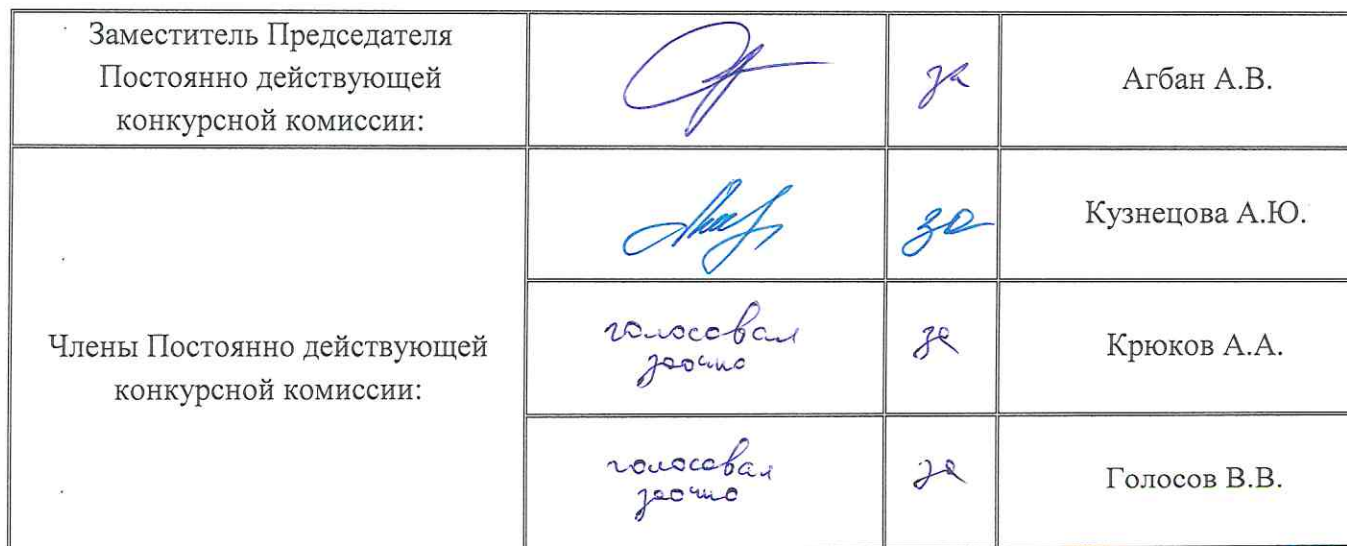 Заместитель Председателя
Постоянно действующей
конкурсной комиссии:
за
Агбан А.В.
Члены Постоянно действующей
конкурсной комиссии:
за
Кузнецова А.Ю.
голосовал
заочно
за
Крюков А.А.
голосовал
заочно
за
Голосов В.В.